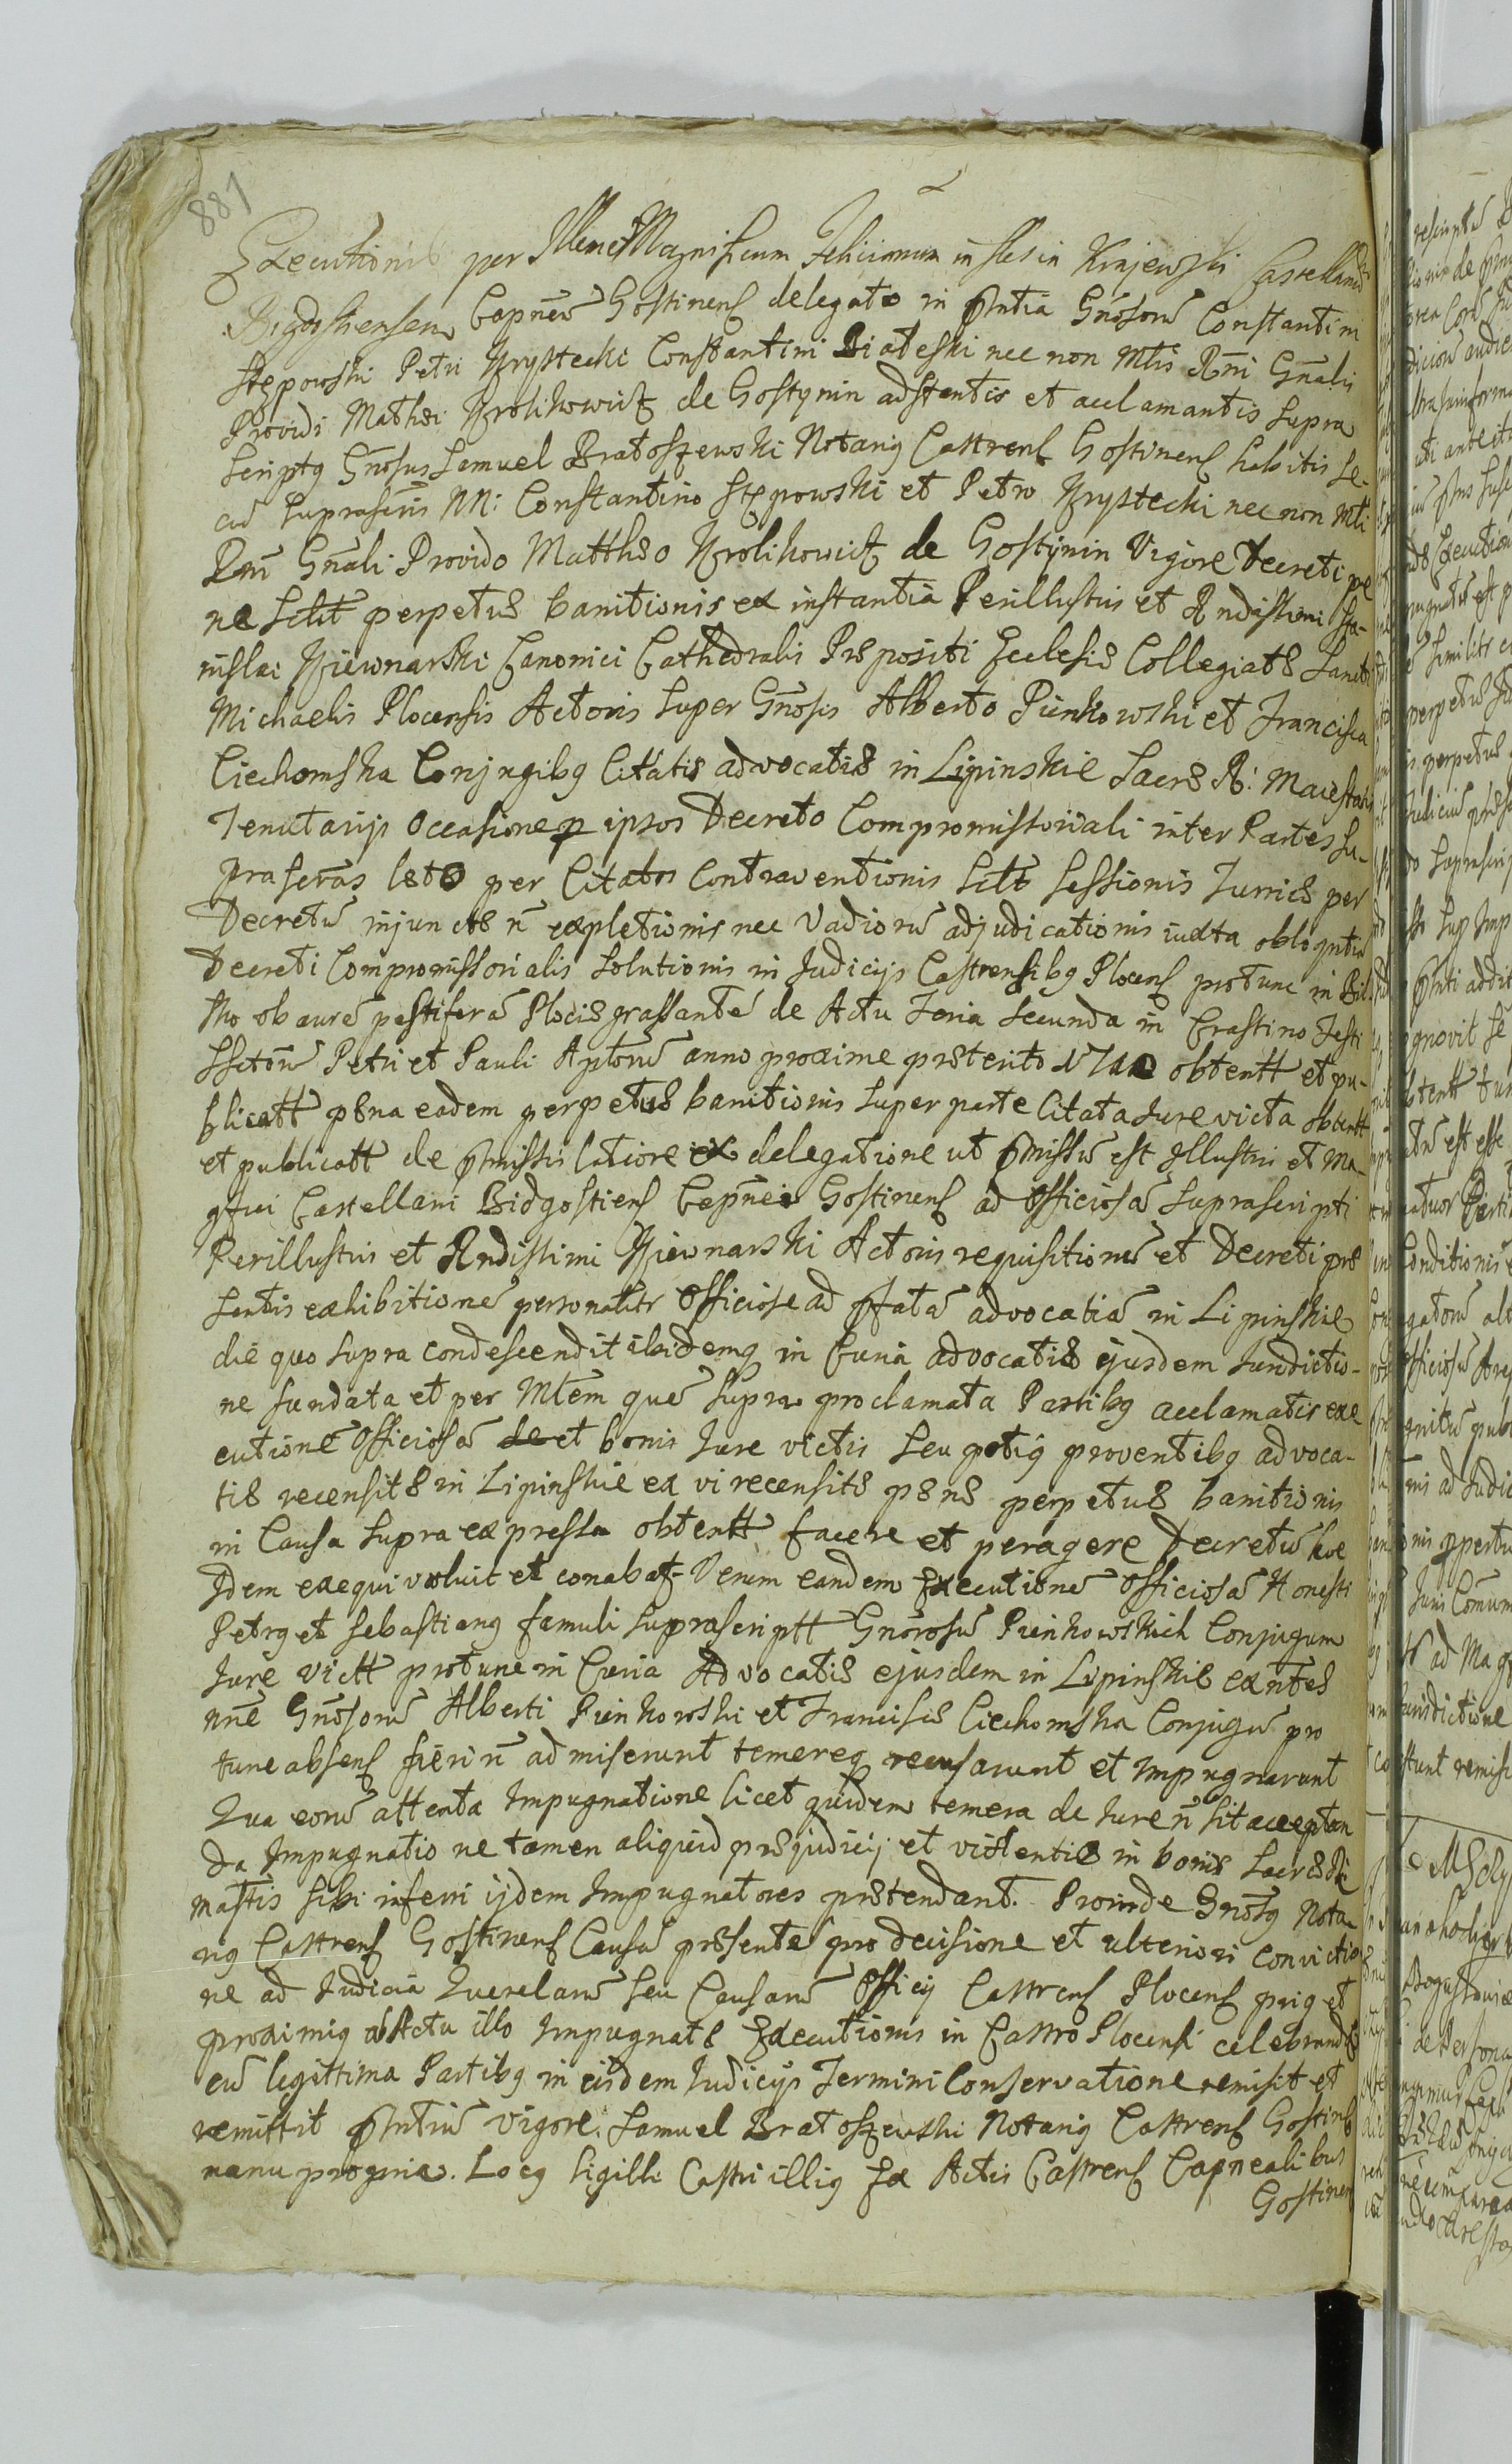 881
Executionis per Illrem et Magnificum Felicianum in Slesin Krajewski Castellanū
Bigdostiensem Capn̄eū Gostinens delegato in p̄ntia Gn̄osorū Constantini
Stępowski Petri Krystecki Constantini Białeski nec non Mtis R̄mi Gn̄alis
Providi Mathæi Krolikowicz de Gostynin adstantis et acclamantis supra
scriptq Gn̄osus Samuel Bratoszewski Notariq Castrens Gostinens habitis se-
cū suprascr̄is NN: Constantino Stępowski et Petro Krystecki nec non Mti
R̄m Gn̄ali Provido Matthæo Krolikowicz de Gostÿnin Vigore Decreti pæ
næ scilt perpetuæ banitionis ex instantia Perillustris et Rndissimi Sta-
nislai Kiewnarski Canonici Cathedralis Præpositi Ecclesiæ Collegiatæ Sancti
Michaelis Plocensis Actoris super Gn̄osis Alberto Pienkowski et Francisca
Ciechomska Conjugibq Citatis advocatiæ in Lipinskie Sacræ R: Maiestatis
Tenutarijs Occasione p ipsos Decreto Compromissoriali inter Partes su-
prascr̄as lato per Citatos Contraventionis scilt sessionis Iurricæ per
Decretū injunctæ n̄ expletionis nec Vadiorū adjudicationis iuxta obloqntiā
Decreti Compromissorialis solutionis in Judicijs Castrensibq Plocens protunc in Biel
sko ob aurē pestiferā Plociæ grassantē de Actu Feria Secunda in Crastino Festi
SSctorū Petri et Pauli Aptorū anno proxime præterito 1710 obtentt et pu-
blicatt pæna eadem perpetuæ banitionis super parte Citata Iure victa obtentt
et publicatt de p̄missis latiore ex delegatione ut p̄missū est Illustris et Ma-
gfici Castellani Bidgostiens Capn̄ei Gostinens ad Officiosā suprascripti
Perillustris et Rndissimi Kiewnarski Actoris requisitionē et Decreti præ
sentis exhibitionē personalitr Officiose ad p̄fatā advocatiā in Lipinskie
die quo supra condescendit ibidemq in Curia advocatiæ ejusdem Iurisdictio-
ne fundata et per Mtēm quē supra proclamata Partibq acclamatis exe
cutionē Officiosā de et bonis Iure victis seu potiq proventibq advoca-
tiæ recensitæ in Lipinskie ex vi recensitæ pænæ perpetuæ banitionis
in Causa supra expressa obtentt facere et peragere Decretū hoc
Idem exequi voluit et conabat- Verum eandem Executionē Officiosā Honesti
Petrq et Sebastianq famuli suprascriptt Gnorosū Pienkowskich Conjugum
Iure victt protunc in Curia Advocatiæ ejusdem in Lipinskie exn̄tes
nn̄e Gn̄osorū Alberti Pienkowski et Franciscæ Ciechomska Conjugū pro
tunc absens fieri n̄ admiserunt temereq recusarunt et Impugnarunt
Qua eorū attenta Impugnatione licet quidem temera de Iure n̄ sit acceptan
da Impugnatio ne tamen aliquid præjudicij et violentiæ in bonis Sacræ R
Mastis sibi inferri ijdem Impugnatores prætendant. Proinde Gnosq Nota-
riq Castrens Gostinens Causā præsentē pro decisione et ulteriori convictio
ne ad Iudicia Querelarū seu Causarū Officij Castrens Plocens priq et
proximiq ab Actu illo Impugnatæ Executionis in Castro Plocensi celebrandæ
cū legittima Partibq in eisdem Iudicijs Termini Conservatione remisit et
remittit p̄ntiū vigore. Samuel Bratoszewski Notariq Castrens Gostinens
manu propria. Locq Sigilli Castri illiq Ex Actis Castrens Capnealibus
Gostinen